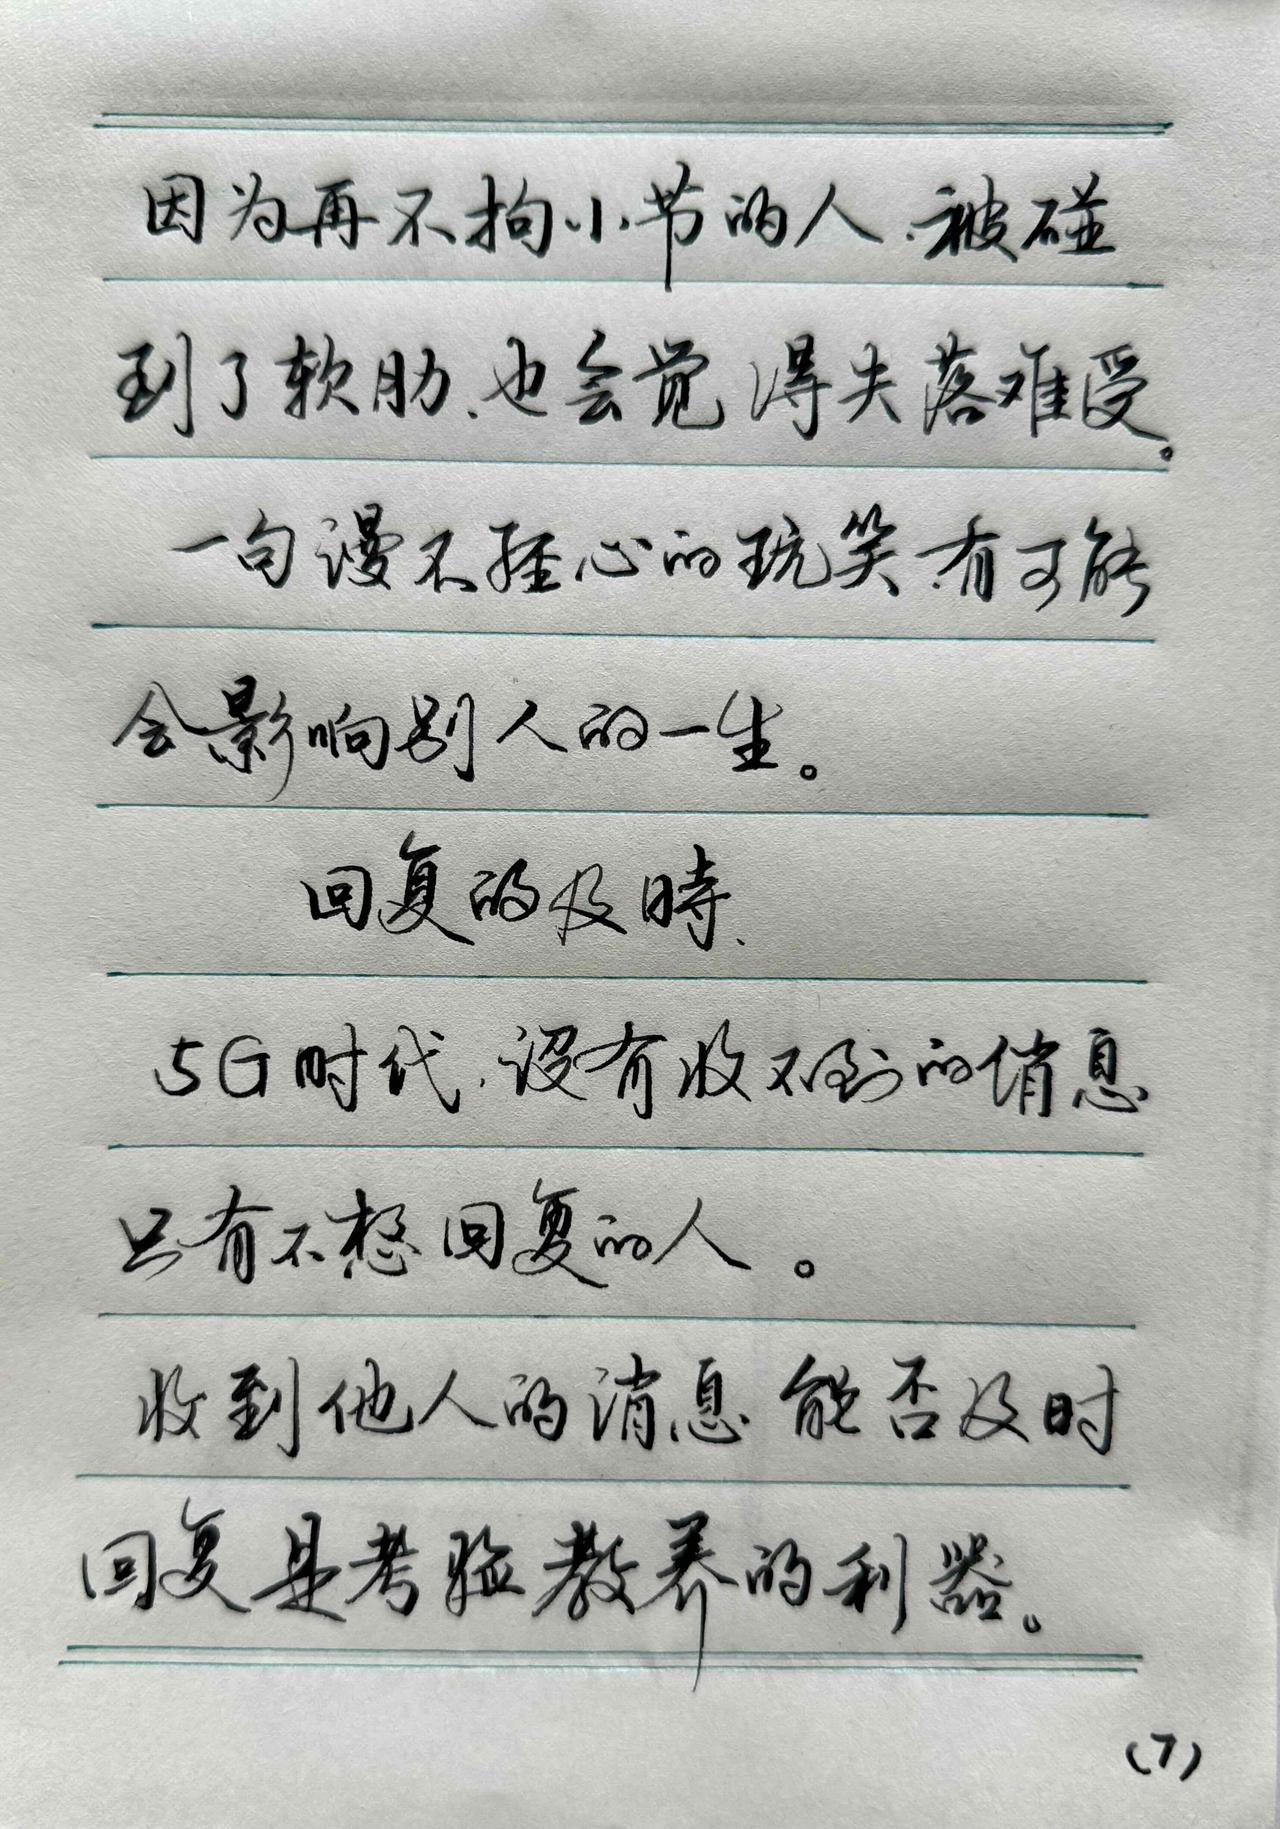 因为再不拘小节的人、被碰
到了软肋、也会觉得失落难受。
一句漫不经心的玩笑、有可能
会影响别人的一生。
回复的及時、
5G时代、没有收不到的消息
只有不想回复的人。
收到他人的消息、能否及时
回复是考验教养的利器。
(7)